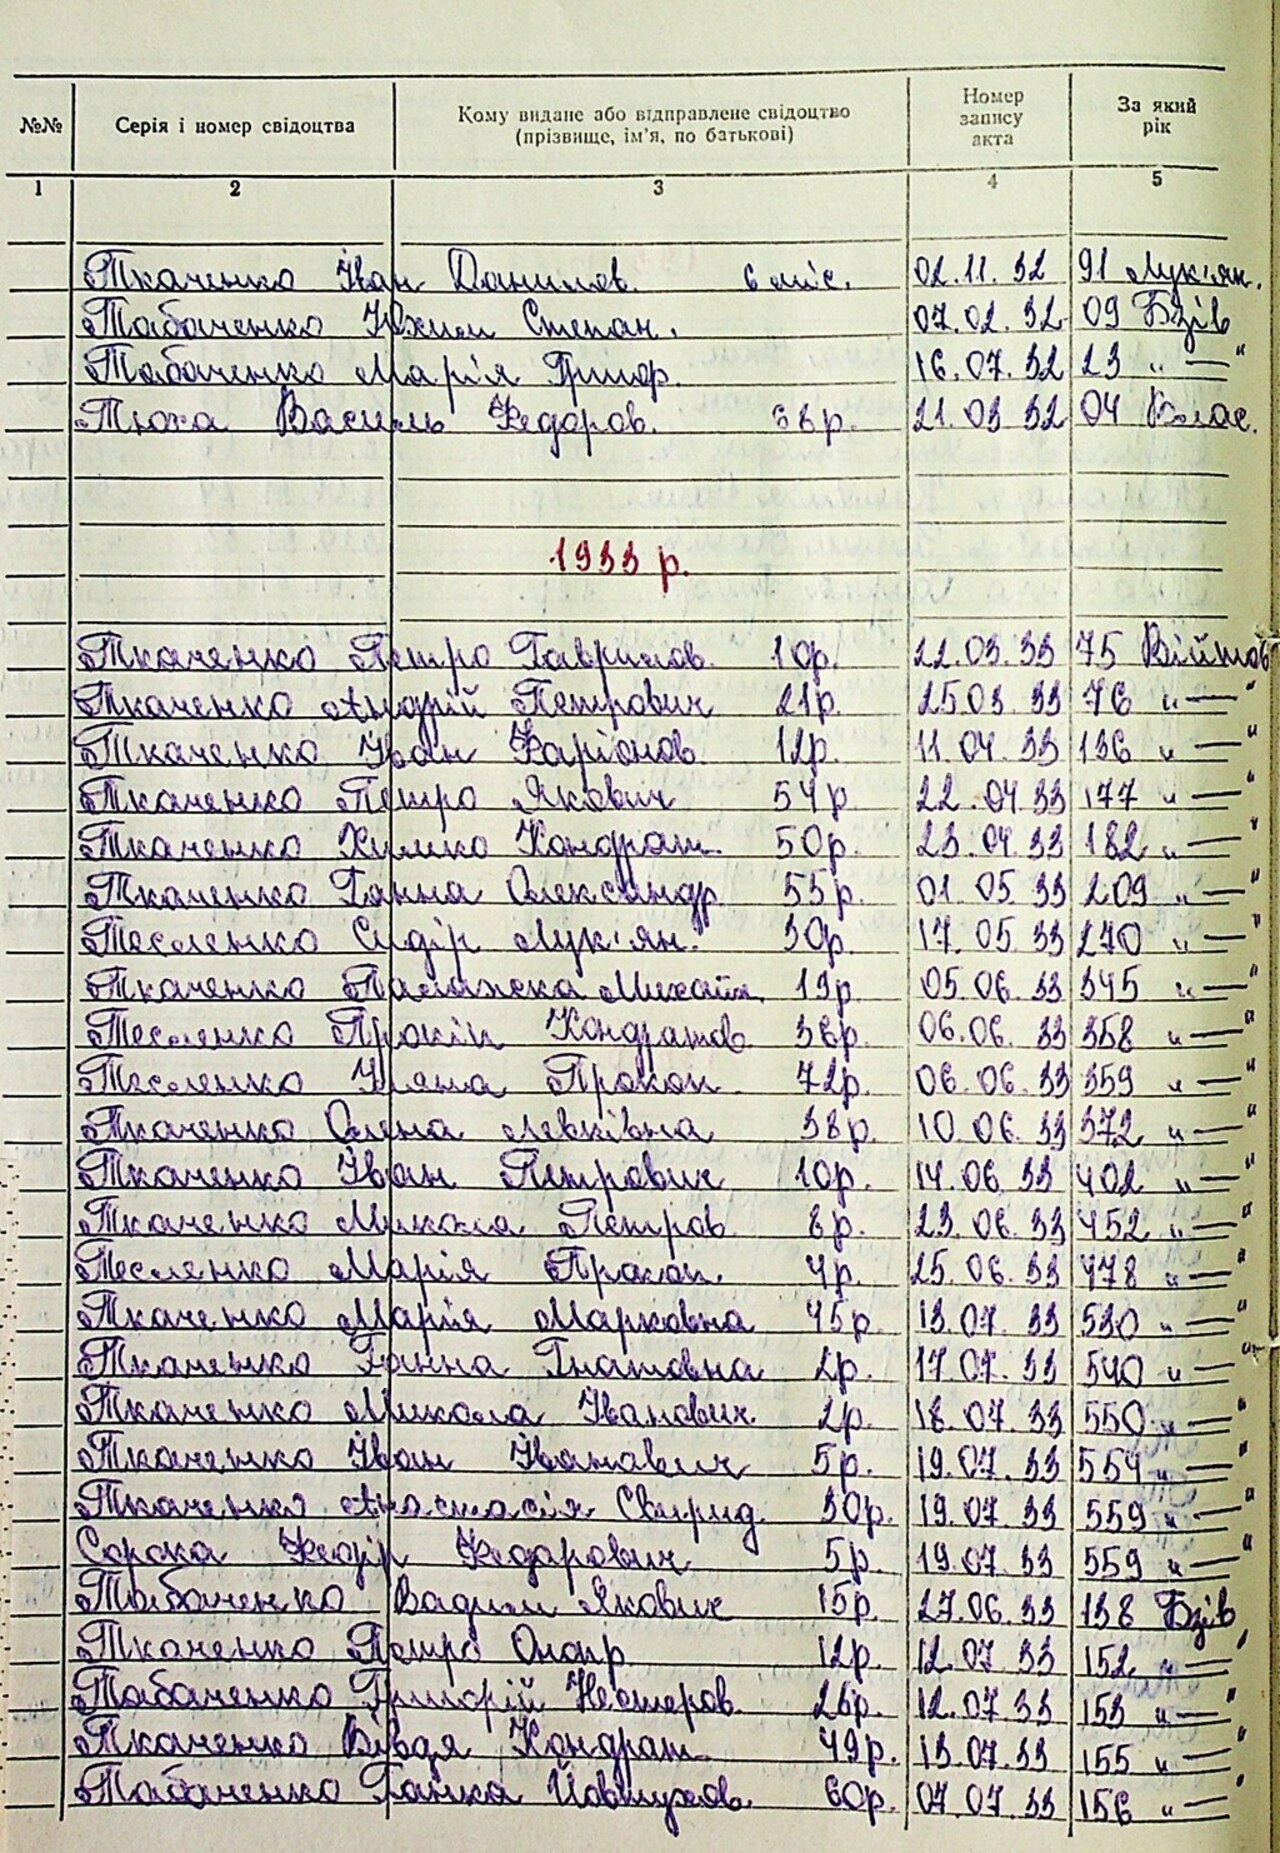 №№ Серія і номер свідоцтва Кому видане або відправлене свідоцтво (прізвище, ім'я, по батькові) Номер запису акта За який рік
1 2 3 4 5
Ткаченко Іван Данилов. 6 міс. 02.11.32 91 Лук'ян.
Табаченко Юхим Степан. 07.02.32 09 Бзів
Табаченко Марія Григор. 16.07.32 23 "—"
Тюха Василь Федоров. 68р. 21.03.32 04 Волос.
1933 р.
Ткаченко Петро Гаврилов. 10р. 22.03.33 75 Війтов
Ткаченко Андрій Петрович 21р. 25.03.33 76 "—"
Ткаченко Іван Ларіонов. 12р. 11.04.33 136 "—"
Ткаченко Петро Якович 54р. 22.04.33 177 "—"
Ткаченко Химко Кондрат. 50р. 23.04.33 182 "—"
Ткаченко Ганна Олександр. 55р. 01.05.33 209 "—"
Тесленко Сидір Лук'ян. 30р. 17.05.33 270 "—"
Ткаченко Палажска Михайл. 19р. 05.06.33 345 "—"
Тесленко Прокіп Кондратов. 38р. 06.06.33 358 "—"
Тесленко Уляна Прокоп. 72р. 06.06.33 359 "—"
Ткаченко Олена Левківна 38р. 10.06.33 372 "—"
Ткаченко Іван Петрович 10р. 14.06.33 402 "—"
Ткаченко Микола Петров. 8р. 23.06.33 452 "—"
Тесленко Марія Прокоп. 4р. 25.06.33 478 "—"
Ткаченко Марія Марковна 45р. 13.07.33 530 "—"
Ткаченко Ганна Гнатовна 2р. 17.07.33 540 "—"
Ткаченко Микола Іванович. 2р. 18.07.33 550 "—"
Ткаченко Іван Іванович 5р. 19.07.33 554 "—"
Ткаченко Анастасія Свирид. 30р. 19.07.33 559 "—"
Сорока Федір Федорович 5р. 19.07.33 559 "—"
Табаченко Вадим Якович 15р. 27.06.33 138 Бзів
Ткаченко Петро Онопр. 12р. 12.07.33 152 "—"
Табаченко Григорій Нестеров. 26р. 12.07.33 153 "—"
Ткаченко Вівдя Кондрат. 49р. 13.07.33 155 "—"
Табаченко Ганка Йовтухов. 60р. 07.07.33 156 "—"